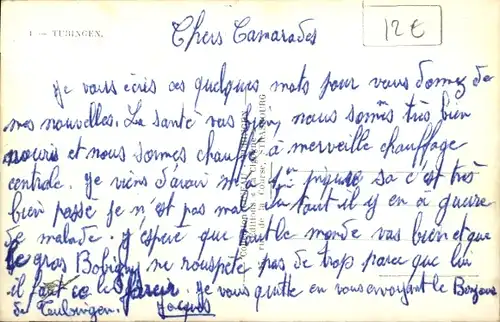 1 — TUBINGEN.
12 €
Chers Camarades
Je vous écris ces quelques mots pour vous donner de
mes nouvelles. La santé vas bien, nous somes très bien
nouris et nous sommes chauffé à merveille chauffage
centrale. Je viens d'avoir ma 1ère piqure sa c'est très
bien passé je n'est pas mal du tout il y en à guère
de malade. J'espère que tout le monde vas bien et que
le gros Bobigny ne rouspéte pas de trop parce que lui
il faut ce le farcir. Je vous quitte en vous envoyant le Bonjour
de Teubingen. Jacques
STRASBOURG